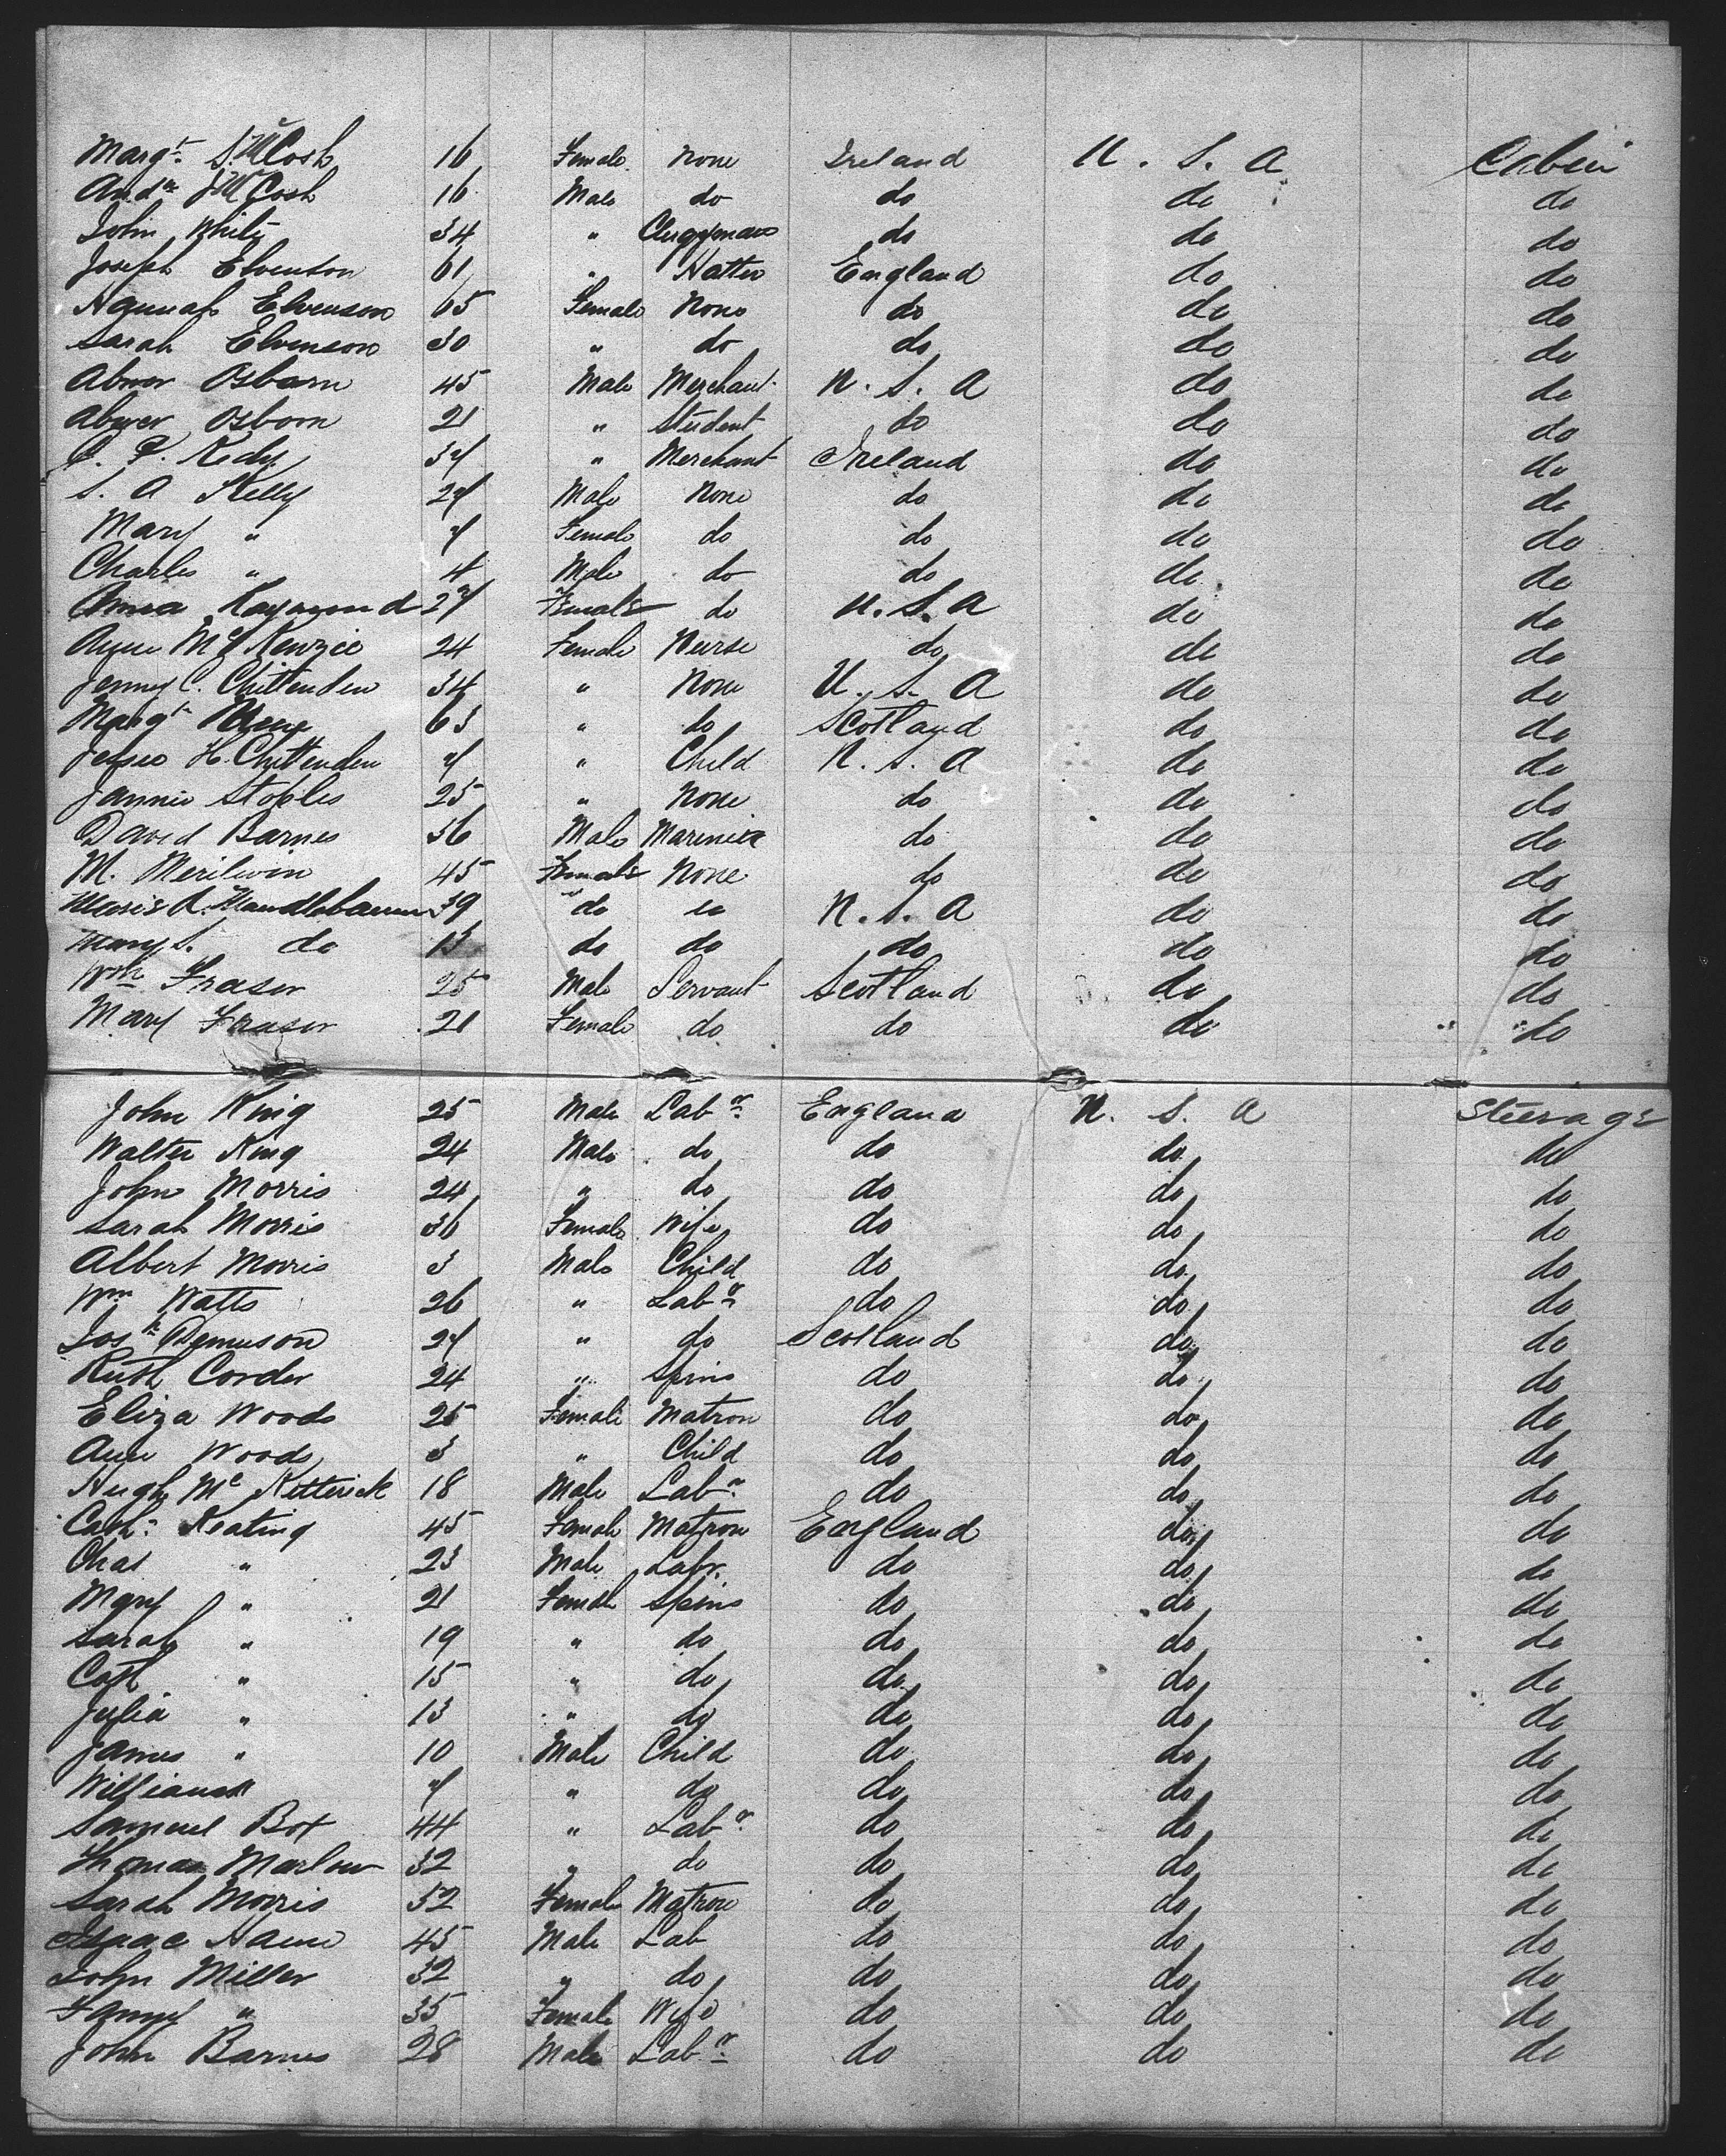 Margt. S. McCosh 16 Female None Ireland U. S. A Cabin
Andw J McCosh 16 Male do do do do
John White 34 " Clergyman do do do
Joseph Elvenson 61 " Hatter England do do
Hannah Elvenson 65 Female None do do do
Sarah Elvenson 30 " do do do do
Abner Osborn 45 Male Merchant U. S. A do do
Abner Osborn 21 " Student do do do
34 " Merchant Ireland do do
S. A Kelly 24 Male None do do do
Mary " Female do do do do
Charles " 4 Male do do do do
Anna Raymond 27 Female do U. S. A do do
Anne McKenzie 24 Female Nurse do do do
Jenny C. Chittenden 34 " None U. S. A do do
Margt 63 " do Scotland do do
Jessie H. Chittenden " Child U. S. A do do
Jannie Stoples 25 " None do do do
David Barnes 36 Male Mariner do do do
M. Merilwin 45 Female None do do do
Moses A. Mandlebaum 39 do do U. S. A do do
Mary S. do 13 do do do do do
Wm Fraser 25 Male Servant Scotland do do
Mary Fraser 21 Female do do do do
John King 25 Male Labr England U. S. A Steerage
Walter King 24 Male do do do do
John Morris 24 " do do do do
Sarah Morris 36 Female Wife do do do
Albert Morris 3 Male Child do do do
Wm Watts 26 " Labr do do do
Josh 24 " do Scotland do do
Ruth Corder 24 " Spins do do do
Eliza Woods 25 Female Matron do do do
Ann Woods 3 " Child do do do
Hugh Mc Ketterick 18 Male Labr do do do
Cath. Keating 45 Female Matron England do do
Chas " 23 Male Labr. do do do
Mary " 21 Female Spins do do do
Sarah " 19 " do do do do
Cath " 15 " do do do do
Julia " 13 " do do do do
James " 10 Male Child do do do
William " " do do do do
Samuel Box 44 " Labr do do do
Thomas Marlow 32 " do do do do
Sarah Morris 52 Female Matron do do do
Isaac Hame 45 Male Lab do do do
John Miller 32 " do do do do
Fanny " 35 Female Wife do do do
John Barnes 28 Male Labr do do do